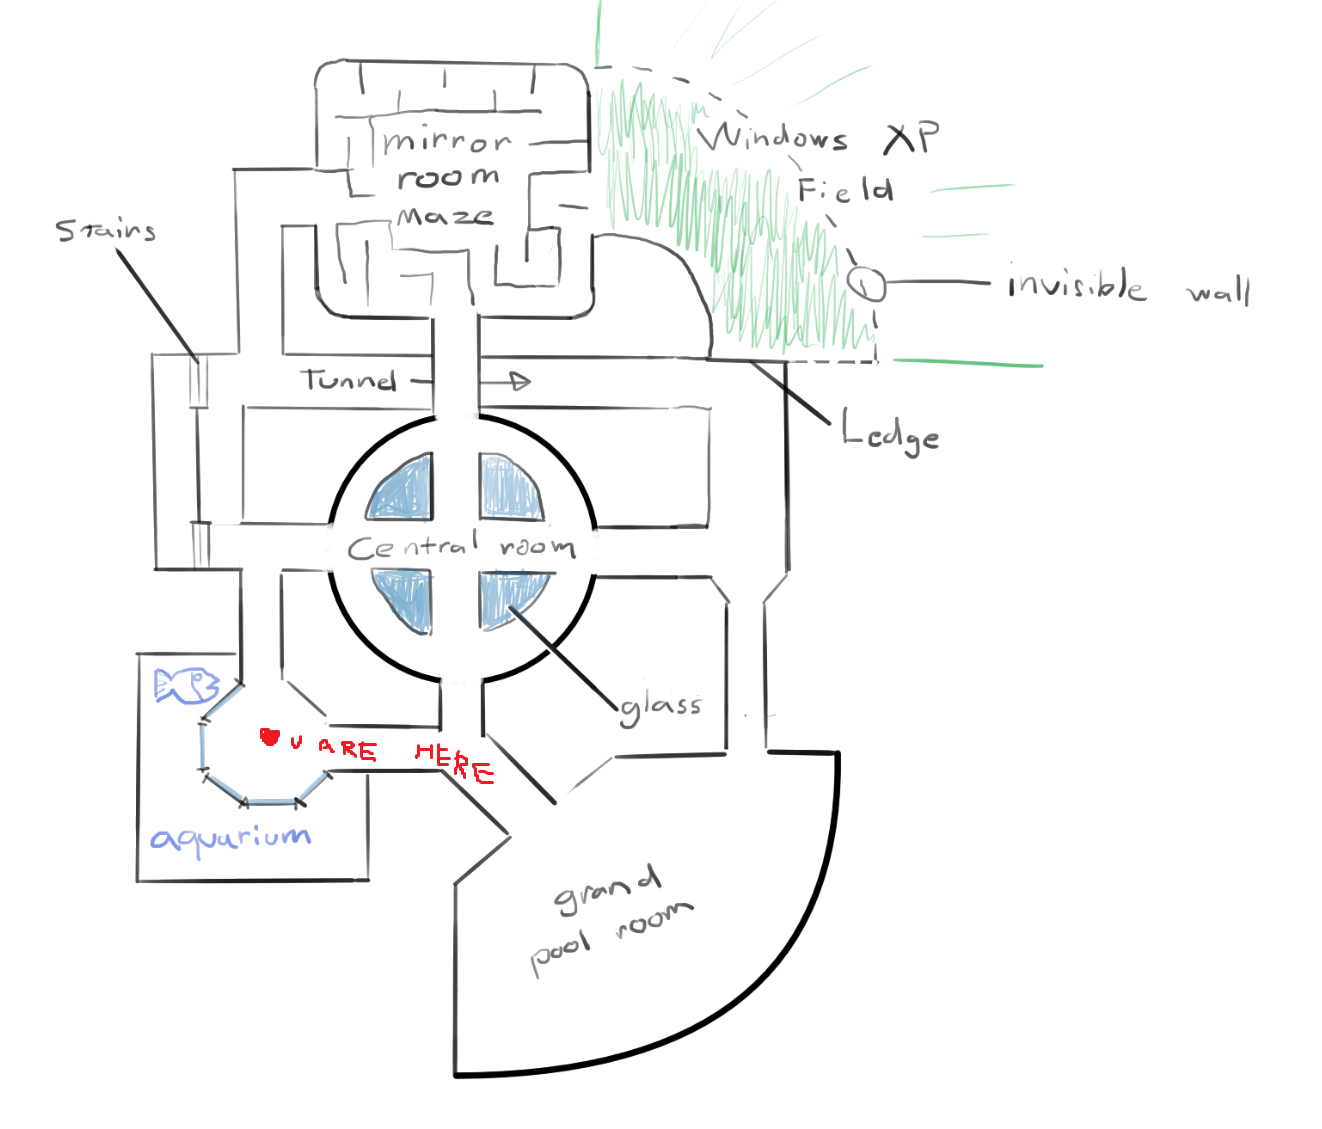 mirror
room
maze
Windows XP
Field
Stairs
invisible wall
Tunnel
Ledge
Central room
glass
U ARE HERE
aquarium
grand
pool room